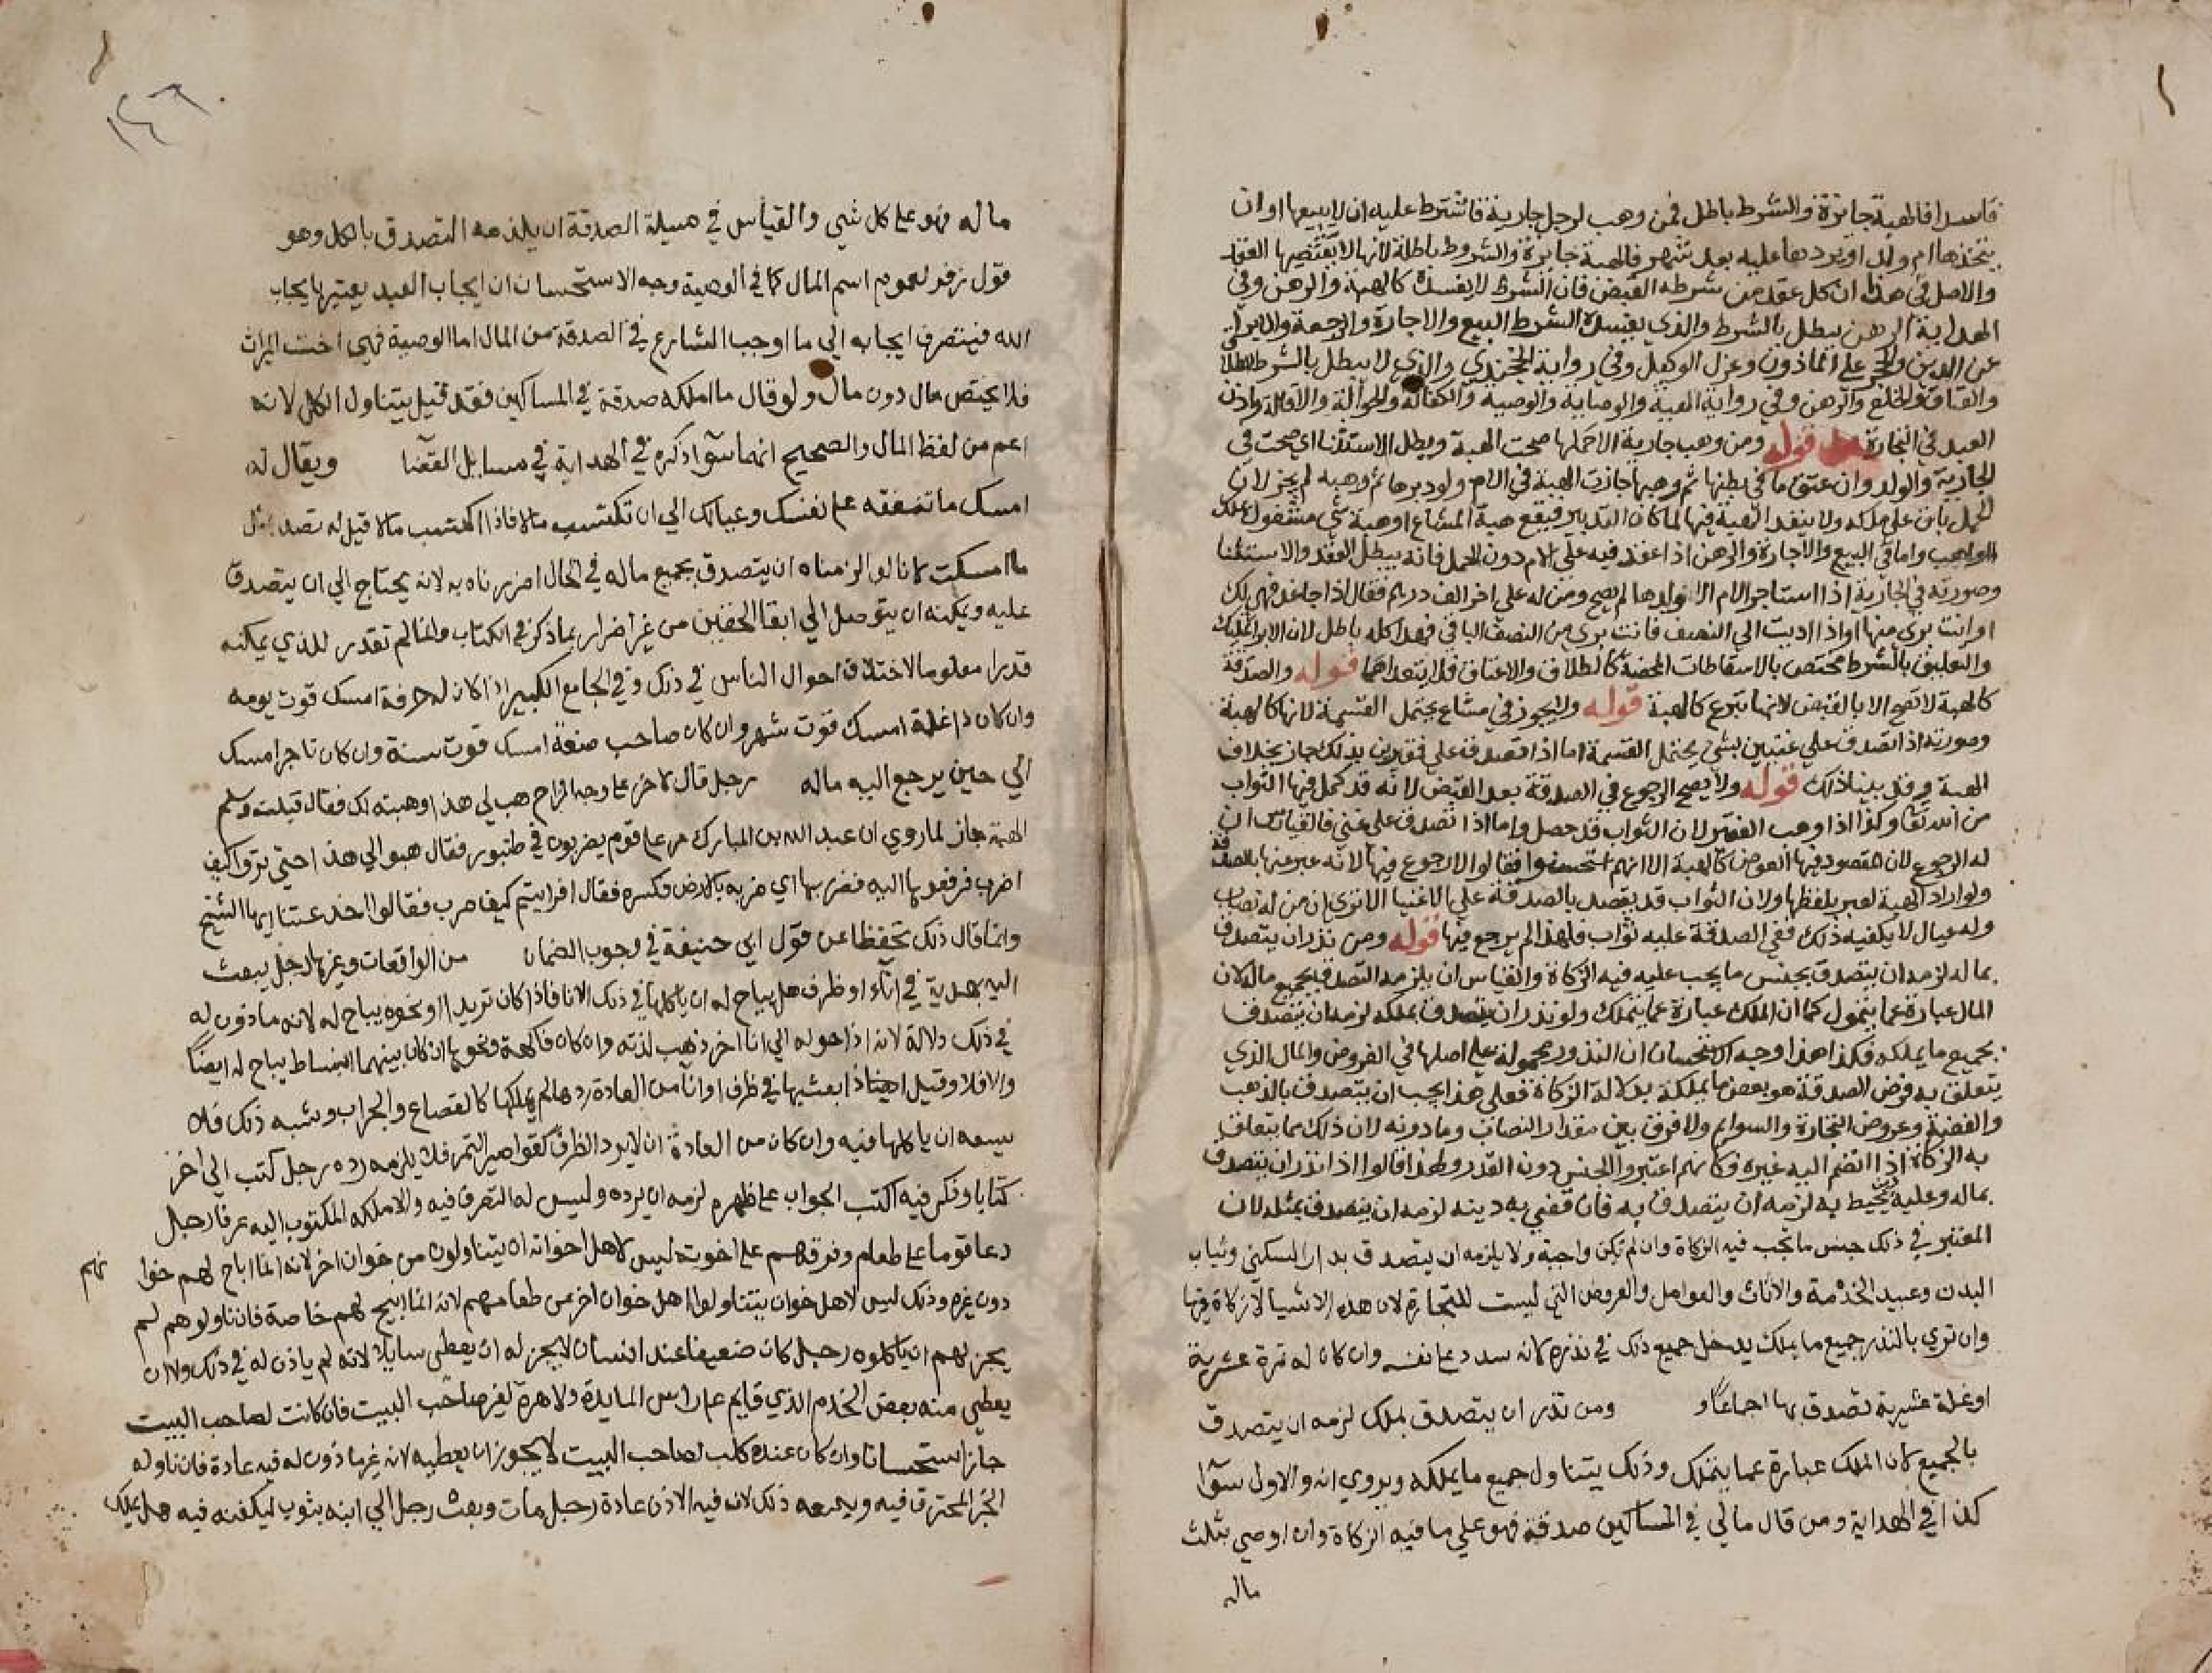 فاسدا فالهبة جايزة والشرط باطل فمن وهب لرجل جارية فاشترط عليه ان لا يبيعها او ان
يتخذها ام ولد او يردها عليه بعد شهر فالهبة جايزة والشروط باطلة لانها لا يقتضيها العقد
والاصل في هذا ان كل عقد من شرطه القبض فان الشرط لا يفسده كالهبة والرهن وفي
الهداية الرهن يبطل بالشرط والذي يفسده الشرط البيع والاجارة والرجعة والابراء
عن الدين والحجر على الماذون وعزل الوكيل وفي رواية الخجندي والذي لا يبطل بالشرط الطلاق
والعتاق والخلع والرهن وفي رواية الهبة والوصاية والوصية والكفالة والحوالة والاقالة واذن
العبد في التجارة قوله ومن وهب جارية الا حملها صحت الهبة وبطل الاستثنا اي صحت في
الجارية والولد وان عتق ما في بطنها ثم وهبها جازت الهبة في الام ولو دبرها ثم وهبه لم يجز لان
الحمل باق على ملكه ولا ينفذ الهبة فيها لمكان التدبير فيقع هبة المشاع او هبة شي مشغول بملك
الواهب واما في البيع والاجارة والرهن اذا عقد فيه على الام دون الحمل فانه يبطل العقد والاستثنا
وصورته في الجارية اذا استاجر الام الا ولدها لم يصح ومن له على اخر الف درهم فقال اذا جا غد فهي لك
او انت بري منها او اذا اديت الي النصف فانت بري من النصف الباقي فهذا كله باطل لان الابرا تمليك
والتعليق بالشرط مختص بالاسقاطات المحضة كالطلاق والاعتاق فلا يتعداهما قوله والصدقة
كالهبة لا تصح الا بالقبض لانها تبرع كالهبة قوله ولا يجوز في مشاع يحتمل القسمة لانها كالهبة
وصورته اذا تصدق على غنيين بشي يحتمل القسمة اما اذا تصدق على فقيرين بذلك جاز بخلاف
الهبة وقد بينا ذلك قوله ولا يصح الرجوع في الصدقة بعد القبض لانه قد كمل فيها الثواب
من الله تعا وكذا اذا وهب الفقير لان الثواب قد حصل واما اذا تصدق على غني فالقياس ان
له الرجوع لان المقصود فيها العوض كالهبة الا انهم استحسنوا فقالوا لا رجوع فيها لانه عبر عنها بالصدقة
ولو اراد الهبة لعبر بلفظها ولان الثواب قد يقصد بالصدقة على الاغنيا الا ترى ان من له نصاب
وله عيال لا يكفيه ذلك ففي الصدقة عليه ثواب فلهذا لم يرجع فيها قوله ومن نذر ان يتصدق
بماله لزمه ان يتصدق بجنس ما يجب عليه فيه الزكاة والقياس ان يلزمه التصدق بجميع ماله لان
المال عبارة عما يتمول كما ان الملك عبارة عما يتملك ولو نذر ان يتصدق بملكه لزمه ان يتصدق
بجميع ما يملكه فكذا هذا وجه الاستحسان ان النذور محمولة على اصلها في الفروض والمال الذي
يتعلق به فرض الصدقة هو بعض ما يملكه بدلالة الزكاة فعلى هذا يجب ان يتصدق بالذهب
والفضة وعروض التجارة والسوايم ولا فرق بين مقدار النصاب وما دونه لان ذلك مما يتعلق
به الزكاة اذا انضم اليه غيره فكانهم اعتبروا الجنس دون القدر ولهذا قالوا اذا نذر ان يتصدق
بماله وعليه دين يحيط به لزمه ان يتصدق به فان قضي به دينه لزمه ان يتصدق بمثله لان
المعتبر في ذلك جنس ما تجب فيه الزكاة وان لم تكن واجبة ولا يلزمه ان يتصدق بدار السكني وثياب
البدن وعبيد الخدمة والاثاث والعوامل والعروض التي ليست للتجارة لان هذه الاشيا لا زكاة فيها
وان نوي بالنذر جميع ما يملك يدخل جميع ذلك في نذره لانه شدد على نفسه وان كان له ثمرة عشرية
او غلة عشرية تصدق بها اجماعا و ومن نذر ان يتصدق بملك لزمه ان يتصدق
بالجميع لان الملك عبارة عما يتملك وذلك يتناول جميع ما يملكه ويروي انه والاول سوآ
كذا في الهداية ومن قال مالي في المساكين صدقة فهو على ما فيه الزكاة وان اوصي بثلث
ماله
١٤٦
ماله فهو على كل شي والقياس في مسيلة الصدقة ان يلزمه التصدق بالكل وهو
قول زفر لعموم اسم المال كما في الوصية وجه الاستحسان ان ايجاب العبد يعتبر بايجاب
الله فينصرف ايجابه الي ما اوجب الشارع في الصدقة من المال اما الوصية فهي اخت الميراث
فلا يختص بمال دون مال ولو قال ما املكه صدقة في المساكين فقد قيل يتناول الكل لانه
اعم من لفظ المال والصحيح انهما سوآ ذكره في الهداية في مسايل القضا ويقال له
امسك ما تنفقه على نفسك وعيالك الي ان تكتسب مالا فاذا اكتسب مالا قيل له تصدق بمثل
ما امسكت لانا لو الزمناه ان يتصدق بجميع ماله في الحال اضررناه به لانه يحتاج الي ان يتصدق
عليه ويمكنه ان يتوصل الي ايفا الحقين من غير اضرار بما ذكر في الكتاب وانما لم تقدر للذي يمكنه
قدرا معلوما لاختلاف احوال الناس في ذلك وفي الجامع الكبير اذا كان له حرفة امسك قوت يومه
وان كان ذا غلة امسك قوت شهر وان كان صاحب صنعة امسك قوت سنة وان كان تاجرا امسك
الي حين يرجع اليه ماله رجل قال لاخر على وجه المزاح هب لي هذا وهبته لك فقال قبلت وسلم
الهبة جاز لما روي ان عبد الله بن المبارك مر على قوم يضربون في طنبور فقال هبوا لي هذا حتي تروا كيف
اضرب فدفعوها اليه فضربها اي ضربه بالارض فكسره فقال افرايتم كيف ضرب فقالوا خدعتنا ايها الشيخ
وانما قال ذلك تحفظا عن قول ابي حنيفة في وجوب الضمان من الواقعات وغيرها رجل يبعث
اليه بهدية في اناء او ظرف هل يباح له ان ياكلها في ذلك الانا فاذا كان تريدا او نحوه يباح له لانه ماذون له
في ذلك دلالة لانه اذا حوله الي انا اخر ذهب لذته وان كان فاكهة ونحوها ان كان بينهما انبساط يباح له ايضا
والا فلا وقيل ايضا اذا بعث بها في ظرف او انا من العادة ردها لم يملكها كالقصاع والجراب وشبه ذلك فلا
يسعه ان ياكلها فيه وان كان من العادة ان لا يرد الظرف كقواصير التمر فلا يلزمه رده رجل كتب الي اخر
كتابا وذكر فيه اكتب الجواب على ظهره لزمه ان يرده وليس له التصرف فيه والا ملكه المكتوب اليه عرفا رجل
دعا قوما على طعام وفرقهم على اخونة ليس لاهل اخوانه ان يتناولوا من خوان اخر لانه انما اباح لهم خوا نهم
دون غيره وذلك ليس لاهل خوان يتناولوا اهل خوان اخر من طعامهم لانه انما ابيح لهم خاصة فان ناولوهم لم
يجز لهم ان ياكلوه رجل كان ضعيفا عند انسان لا يجز له ان يعطي سايلا لانه لم ياذن له في ذلك ولا ان
يعطي منه بعض الخدم الذي قايم على راس المايدة ولا هرة لغير صاحب البيت فان كانت لصاحب البيت
جاز استحسانا وان كان عنده كلب لصاحب البيت لا يجوز ان يعطيه لانه غير ماذون له فيه عادة فان ناوله
الخبز المحترق فيه ويسعه ذلك لانه فيه الاذن عادة رجل مات وبعث رجل الي ابنه بثوب ليكفنه فيه هل يملك